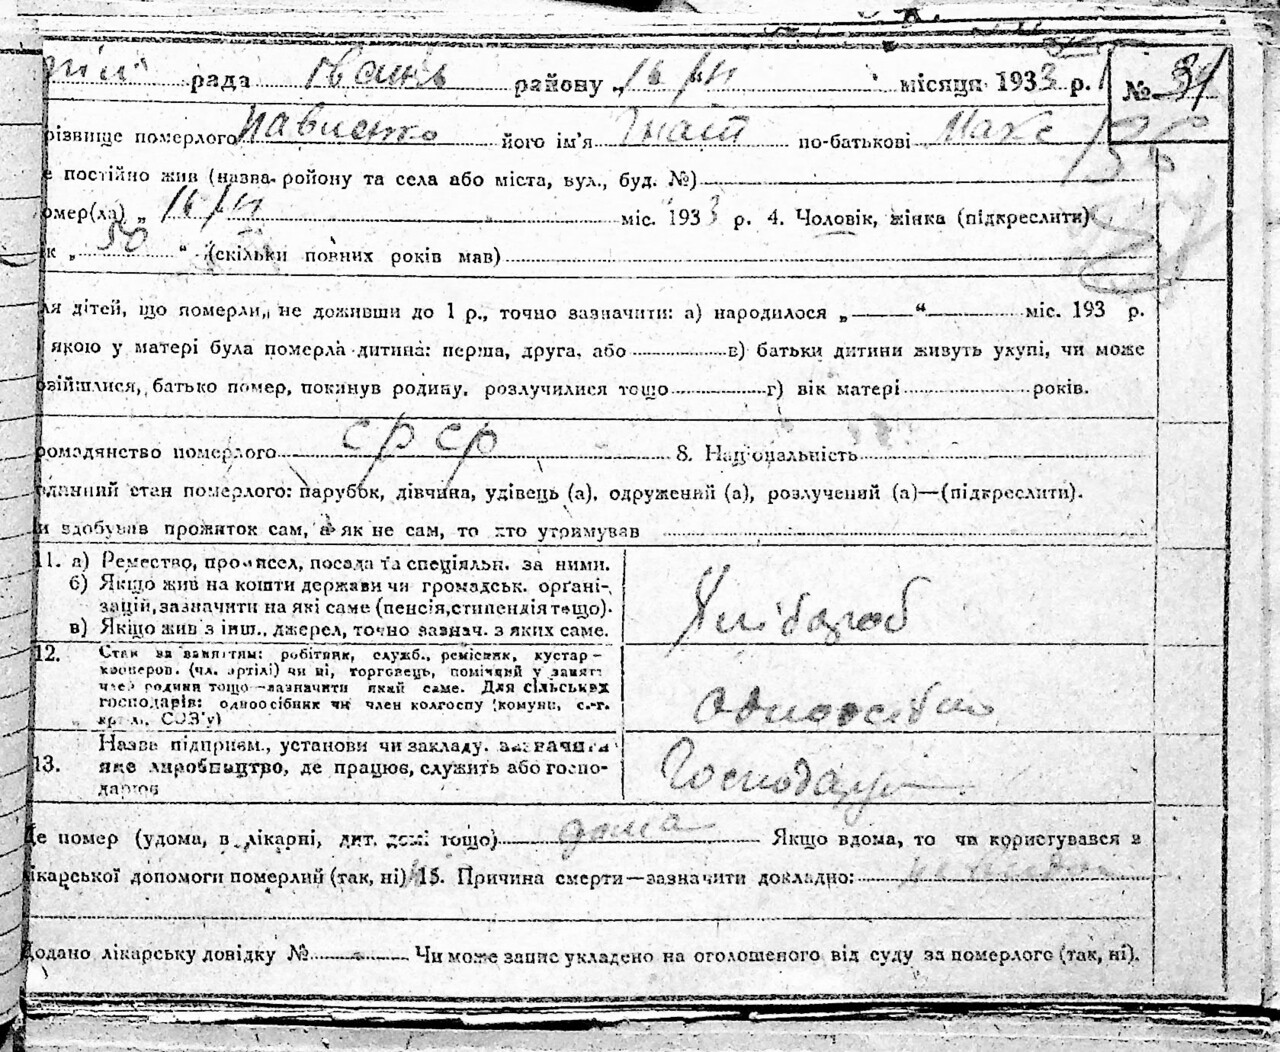 рада району „16/III “ місяця 1933 р. № 31
різвище померлого Павненко його ім'я Гнат по-батькові Макс
е постійно жив (назва району та села або міста, вул., буд. №)
омер(ла) „ 16/III міс. 1933 р. 4. Чоловік, жінка (підкреслити)
к „ 50 “ (скільки повних років мав)
ля дітей, що померли, не доживши до 1 р., точно зазначити: а) народилося „ “ міс. 193 р.
якою у матері була померла дитина: перша, друга, або в) батьки дитини живуть укупі, чи може
озійшлися, батько помер, покинув родину, розлучилися тощо г) вік матері років.
ромадянство померлого СРСР 8. Національність
одинний стан померлого: парубок, дівчина, удівець (а), одружений (а), розлучений (а)—(підкреслити).
и здобував прожиток сам, а як не сам, то хто утримував
11. а) Ремество, промисел, посада та спеціяльн. за ними.
б) Якщо жив на кошти держави чи громадськ. орґані-
зацій, зазначити на які саме (пенсія, стипендія тощо).
в) Якщо жив з інш., джерел, точно зазнач. з яких саме.
Хлібороб
12. Стан за заняттям: робітник, служб., ремісник, кустар-
кооперов. (чл. артілі) чи ні, торговець, помічний у занят.
член родини тощо—зазначити який саме. Для сільських
господарів: одноосібник чи член колгоспу (комуни, с.-г.
артіль, СОЗ'у)
13. Назва підприєм., установи чи закладу, зазначити
яке виробництво, де працює, служить або госпо-
дарює
Де помер (удома, в лікарні, дит. домі тощо) дома Якщо вдома, то чи користувався з
ікарської допомоги померлий (так, ні) 15. Причина смерти—зазначити докладно:
Додано лікарську довідку № Чи може запис укладено на оголошеного від суду за померлого (так, ні).